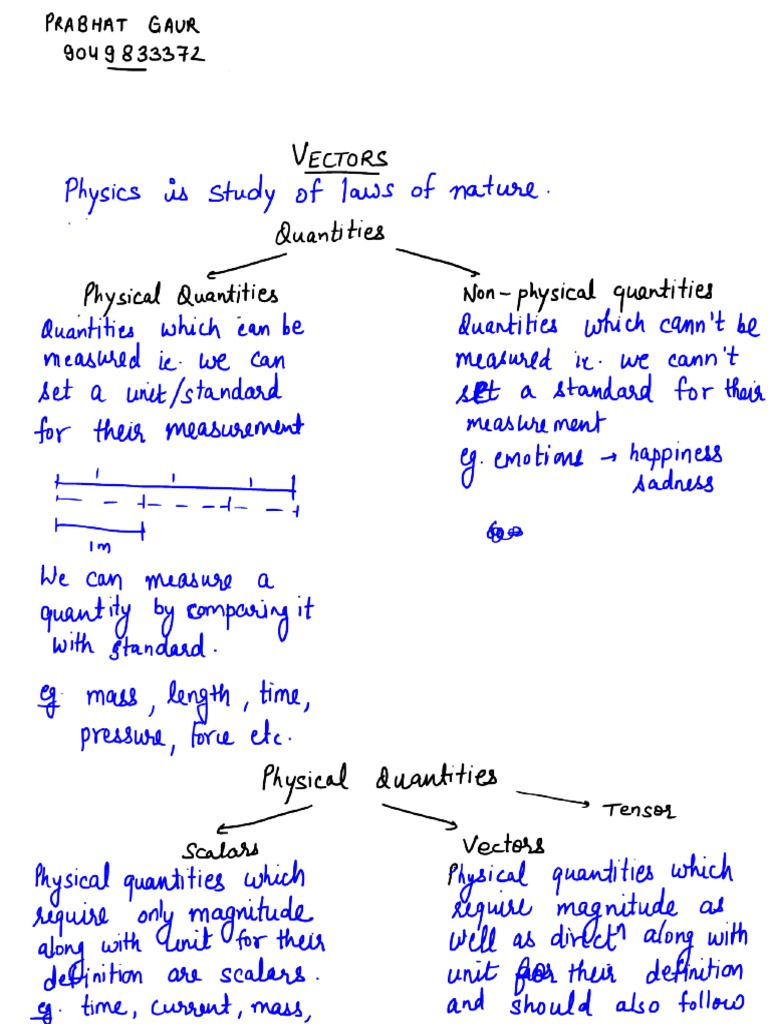 PRABHAT GAUR
9049833372
VECTORS
Physics is study of laws of nature.
Quantities
Physical Quantities
Quantities which can be
measured ie. we can
set a unit/standard
for their measurement
1m
We can measure a
quantity by comparing it
with standard.
eg. mass, length, time,
pressure, force etc.
Non-physical quantities
Quantities which cann't be
measured ie. we cann't
set a standard for their
measurement
eg. emotions → happiness
sadness
Physical Quantities
Tensor
Scalars
Physical quantities which
require only magnitude
along with unit for their
definition are scalars.
eg. time, current, mass,
Vectors
Physical quantities which
require magnitude as
well as directⁿ along with
unit for their definition
and should also follow